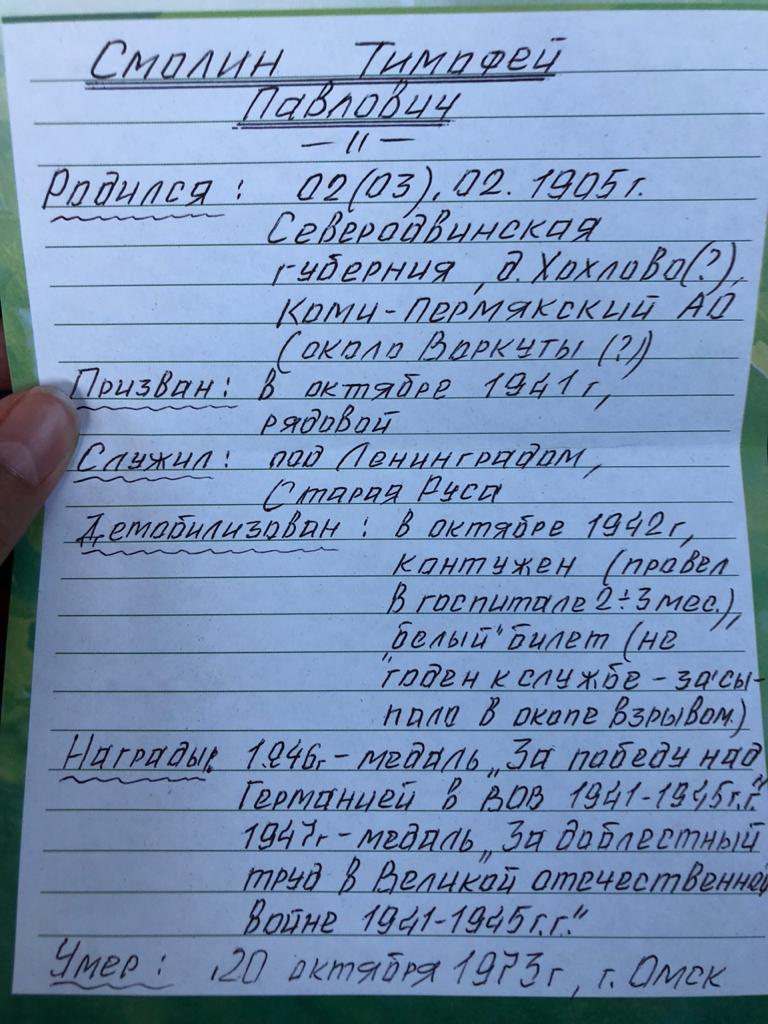 Смолин Тимофей
Павлович
— 11 —
Родился: 02(03).02.1905г.
Северодвинская
губерния, д. Хохлово(?),
Коми-Пермякский АО
(около Воркуты (?))
Призван: в октябре 1941г,
рядовой
Служил: под Ленинградом,
Старая Руса
Демобилизован: в октябре 1942г,
контужен (провел
в госпитале 2÷3 мес.),
"белый" билет (не
годен к службе - засы-
пало в окопе взрывом.)
Награды: 1946г - медаль „За победу над
Германией в ВОВ 1941-1945г.г."
1947г - медаль „За доблестный
труд в Великой отечественной
войне 1941-1945г.г."
Умер: 20 октября 1973г, г. Омск